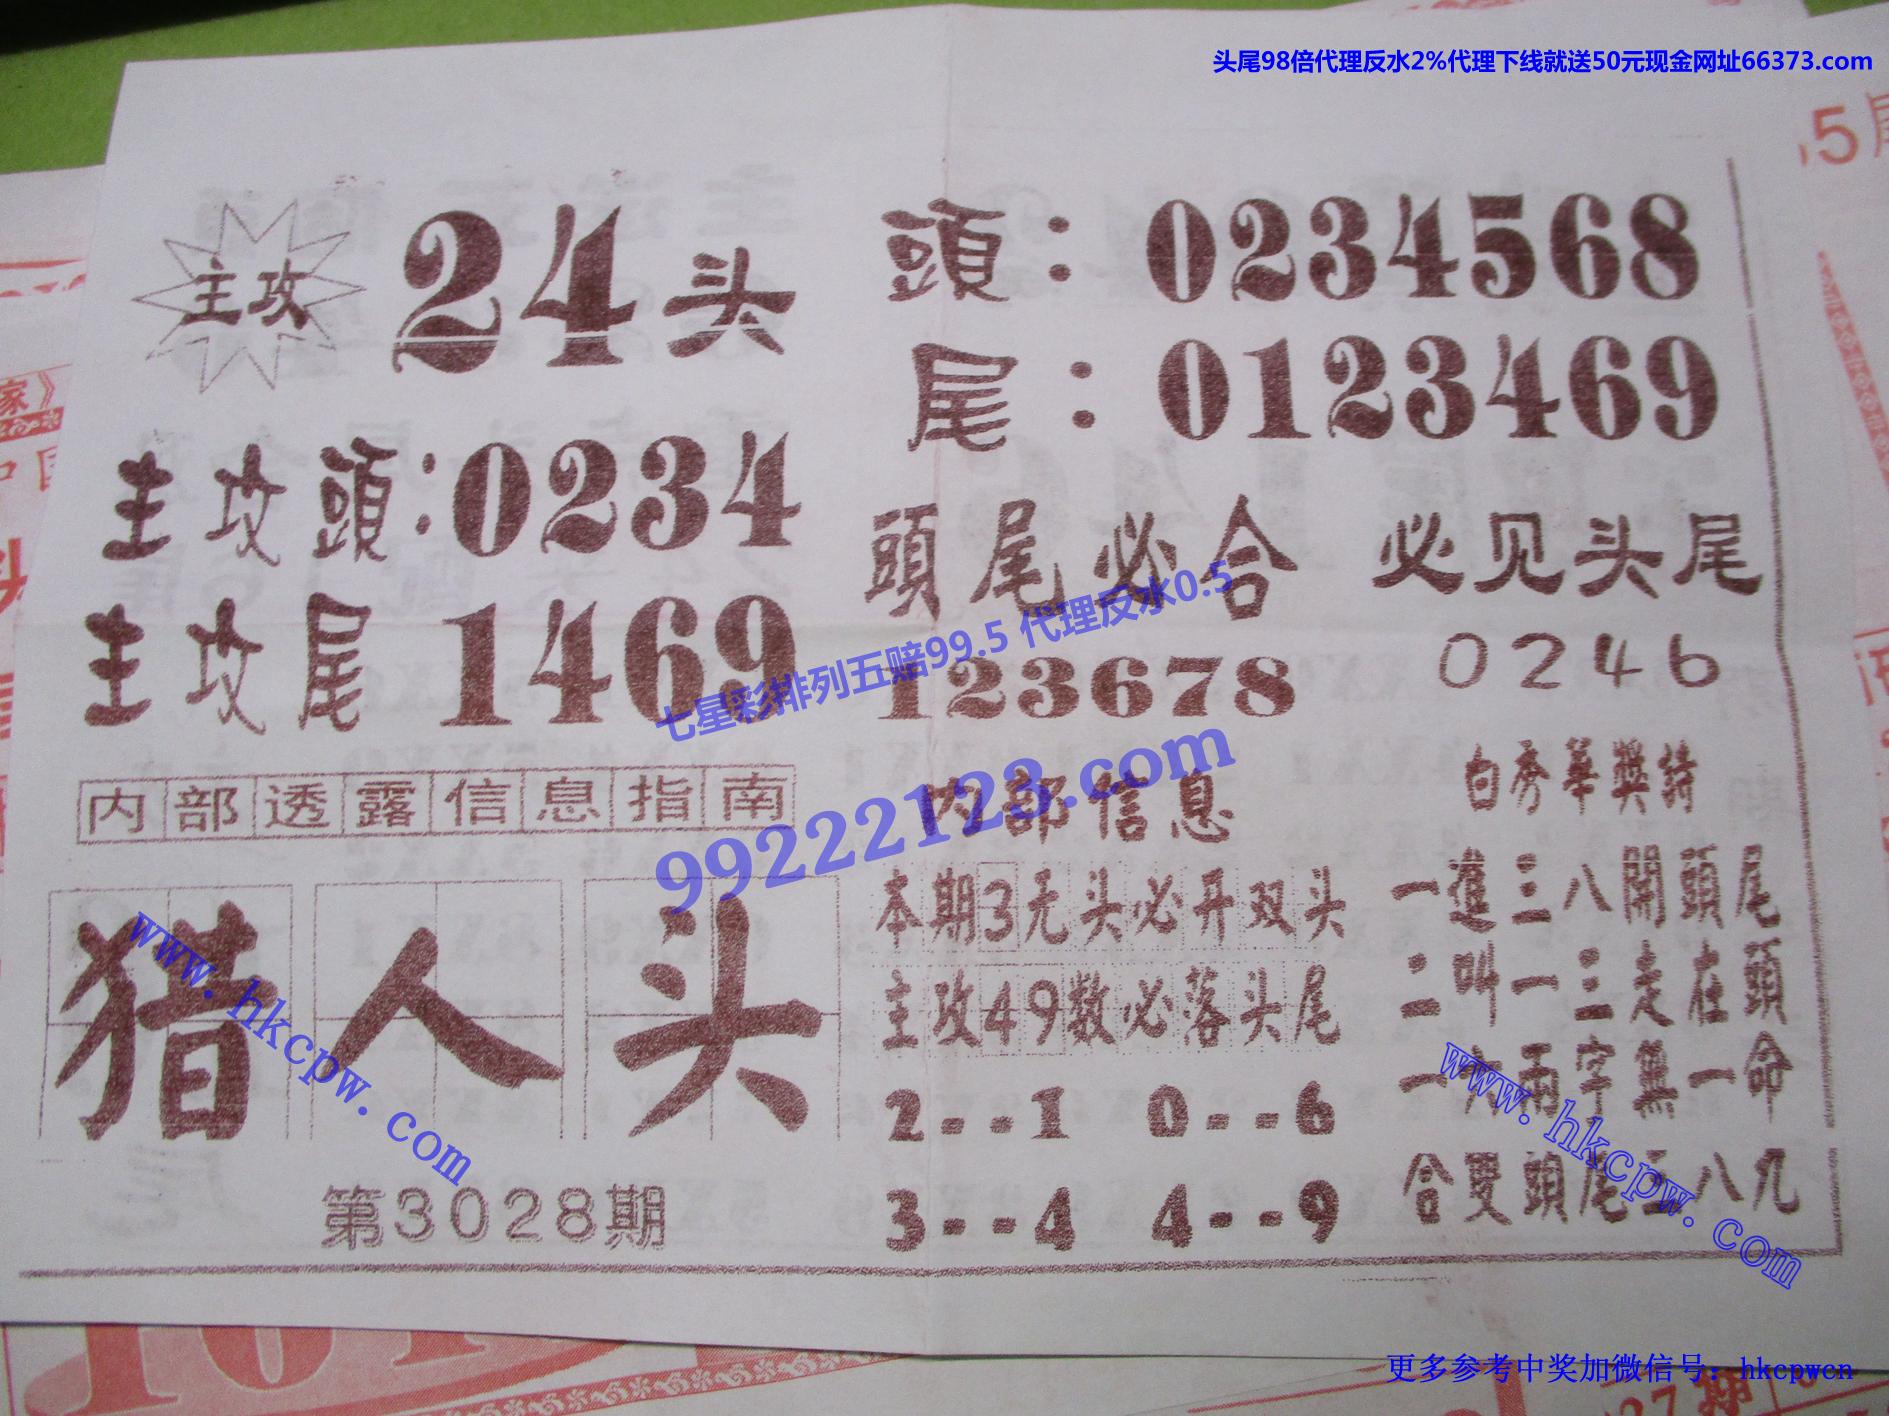 头尾98倍代理反水2%代理下线就送50元现金网址66373.com
主攻 24头
主攻頭:0234
主攻尾 1469
内部透露信息指南
猎人头
第3028期
頭:0234568
尾:0123469
頭尾必合
123678
必见头尾
0246
内部信息
本期3无头必开双头
主攻49数必落头尾
2--1 0--6
3--4 4--9
白秀華獎詩
一進三八開頭尾
二叫一三走在頭
一六兩字無一命
合雙頭尾五八九
七星彩排列五赔99.5 代理反水0.5
99222123.com
www.hkcpw.com
www.hkcpw.com
更多参考中奖加微信号: hkcpwcn
家》
中国
.5尾